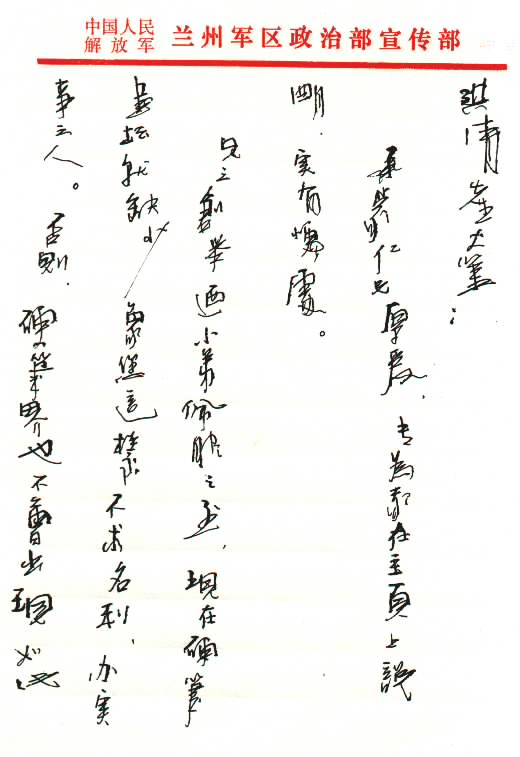 中国人民解放军 兰州军区政治部宣传部
洪清先生大鉴：
承蒙仁兄厚爱，专为都在主页上说
明，实有愧处。
兄之创举迺小弟佩服之至，现在硬笔
书坛就缺少像您这样不求名利，办实
事之人。否则，硬笔界也不会出现如此